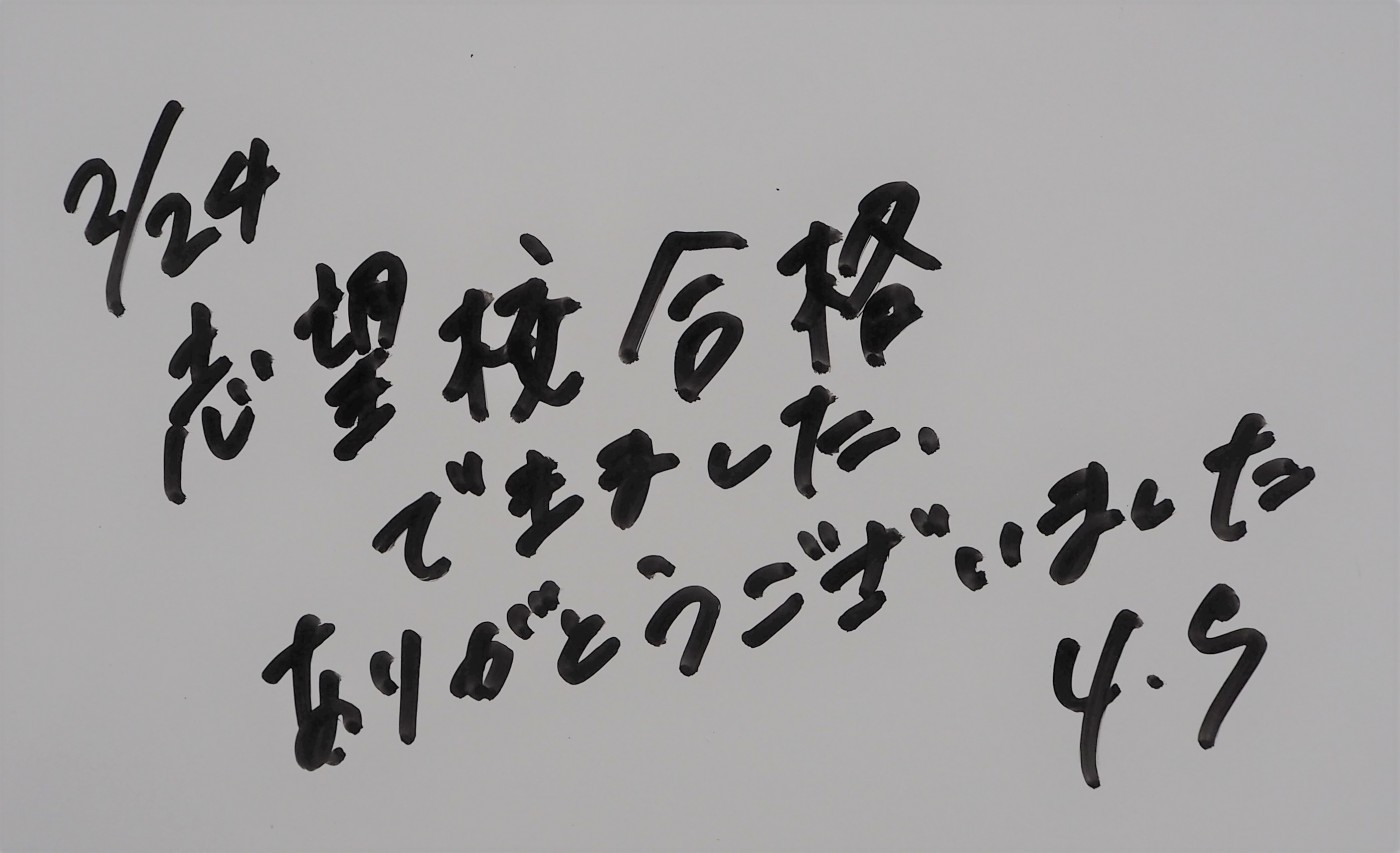 2/24
志望校合格
できました.
ありがとうございました
Y.S